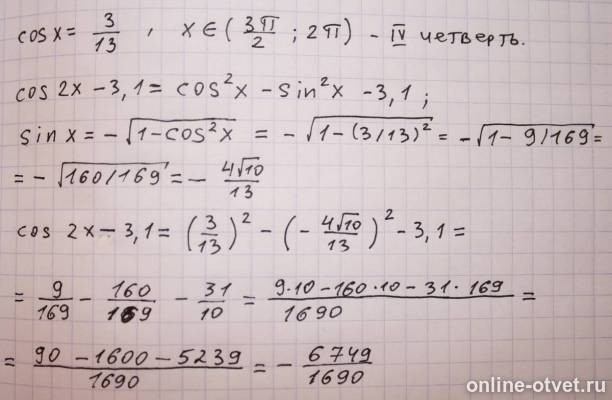 cos x = 3/13 , x ∈ (3π/2 ; 2π) - IV четверть.
cos 2x - 3,1 = cos²x - sin²x - 3,1 ;
sin x = - √(1-cos²x) = - √(1-(3/13)²) = - √(1-9/169) =
= - √(160/169) = - 4√10/13
cos 2x - 3,1 = (3/13)² - (- 4√10/13)² - 3,1 =
= 9/169 - 160/169 - 31/10 = (9·10 - 160·10 - 31·169)/1690 =
= (90 - 1600 - 5239)/1690 = - 6749/1690
online-otvet.ru